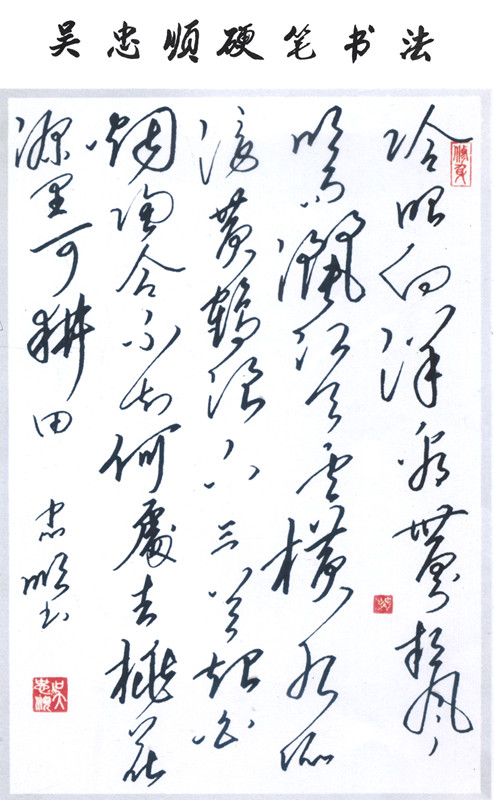 吴忠顺硬笔书法
冷眼向洋看世界热风
吹雨灑江天云横九派
浮黄鹤浪下三吴起白
烟陶令不知何處去桃花
源里可耕田 忠顺书